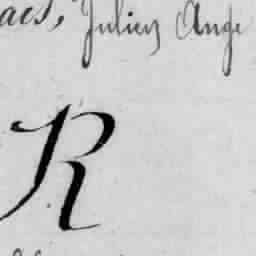 aes, Julien Ange
R